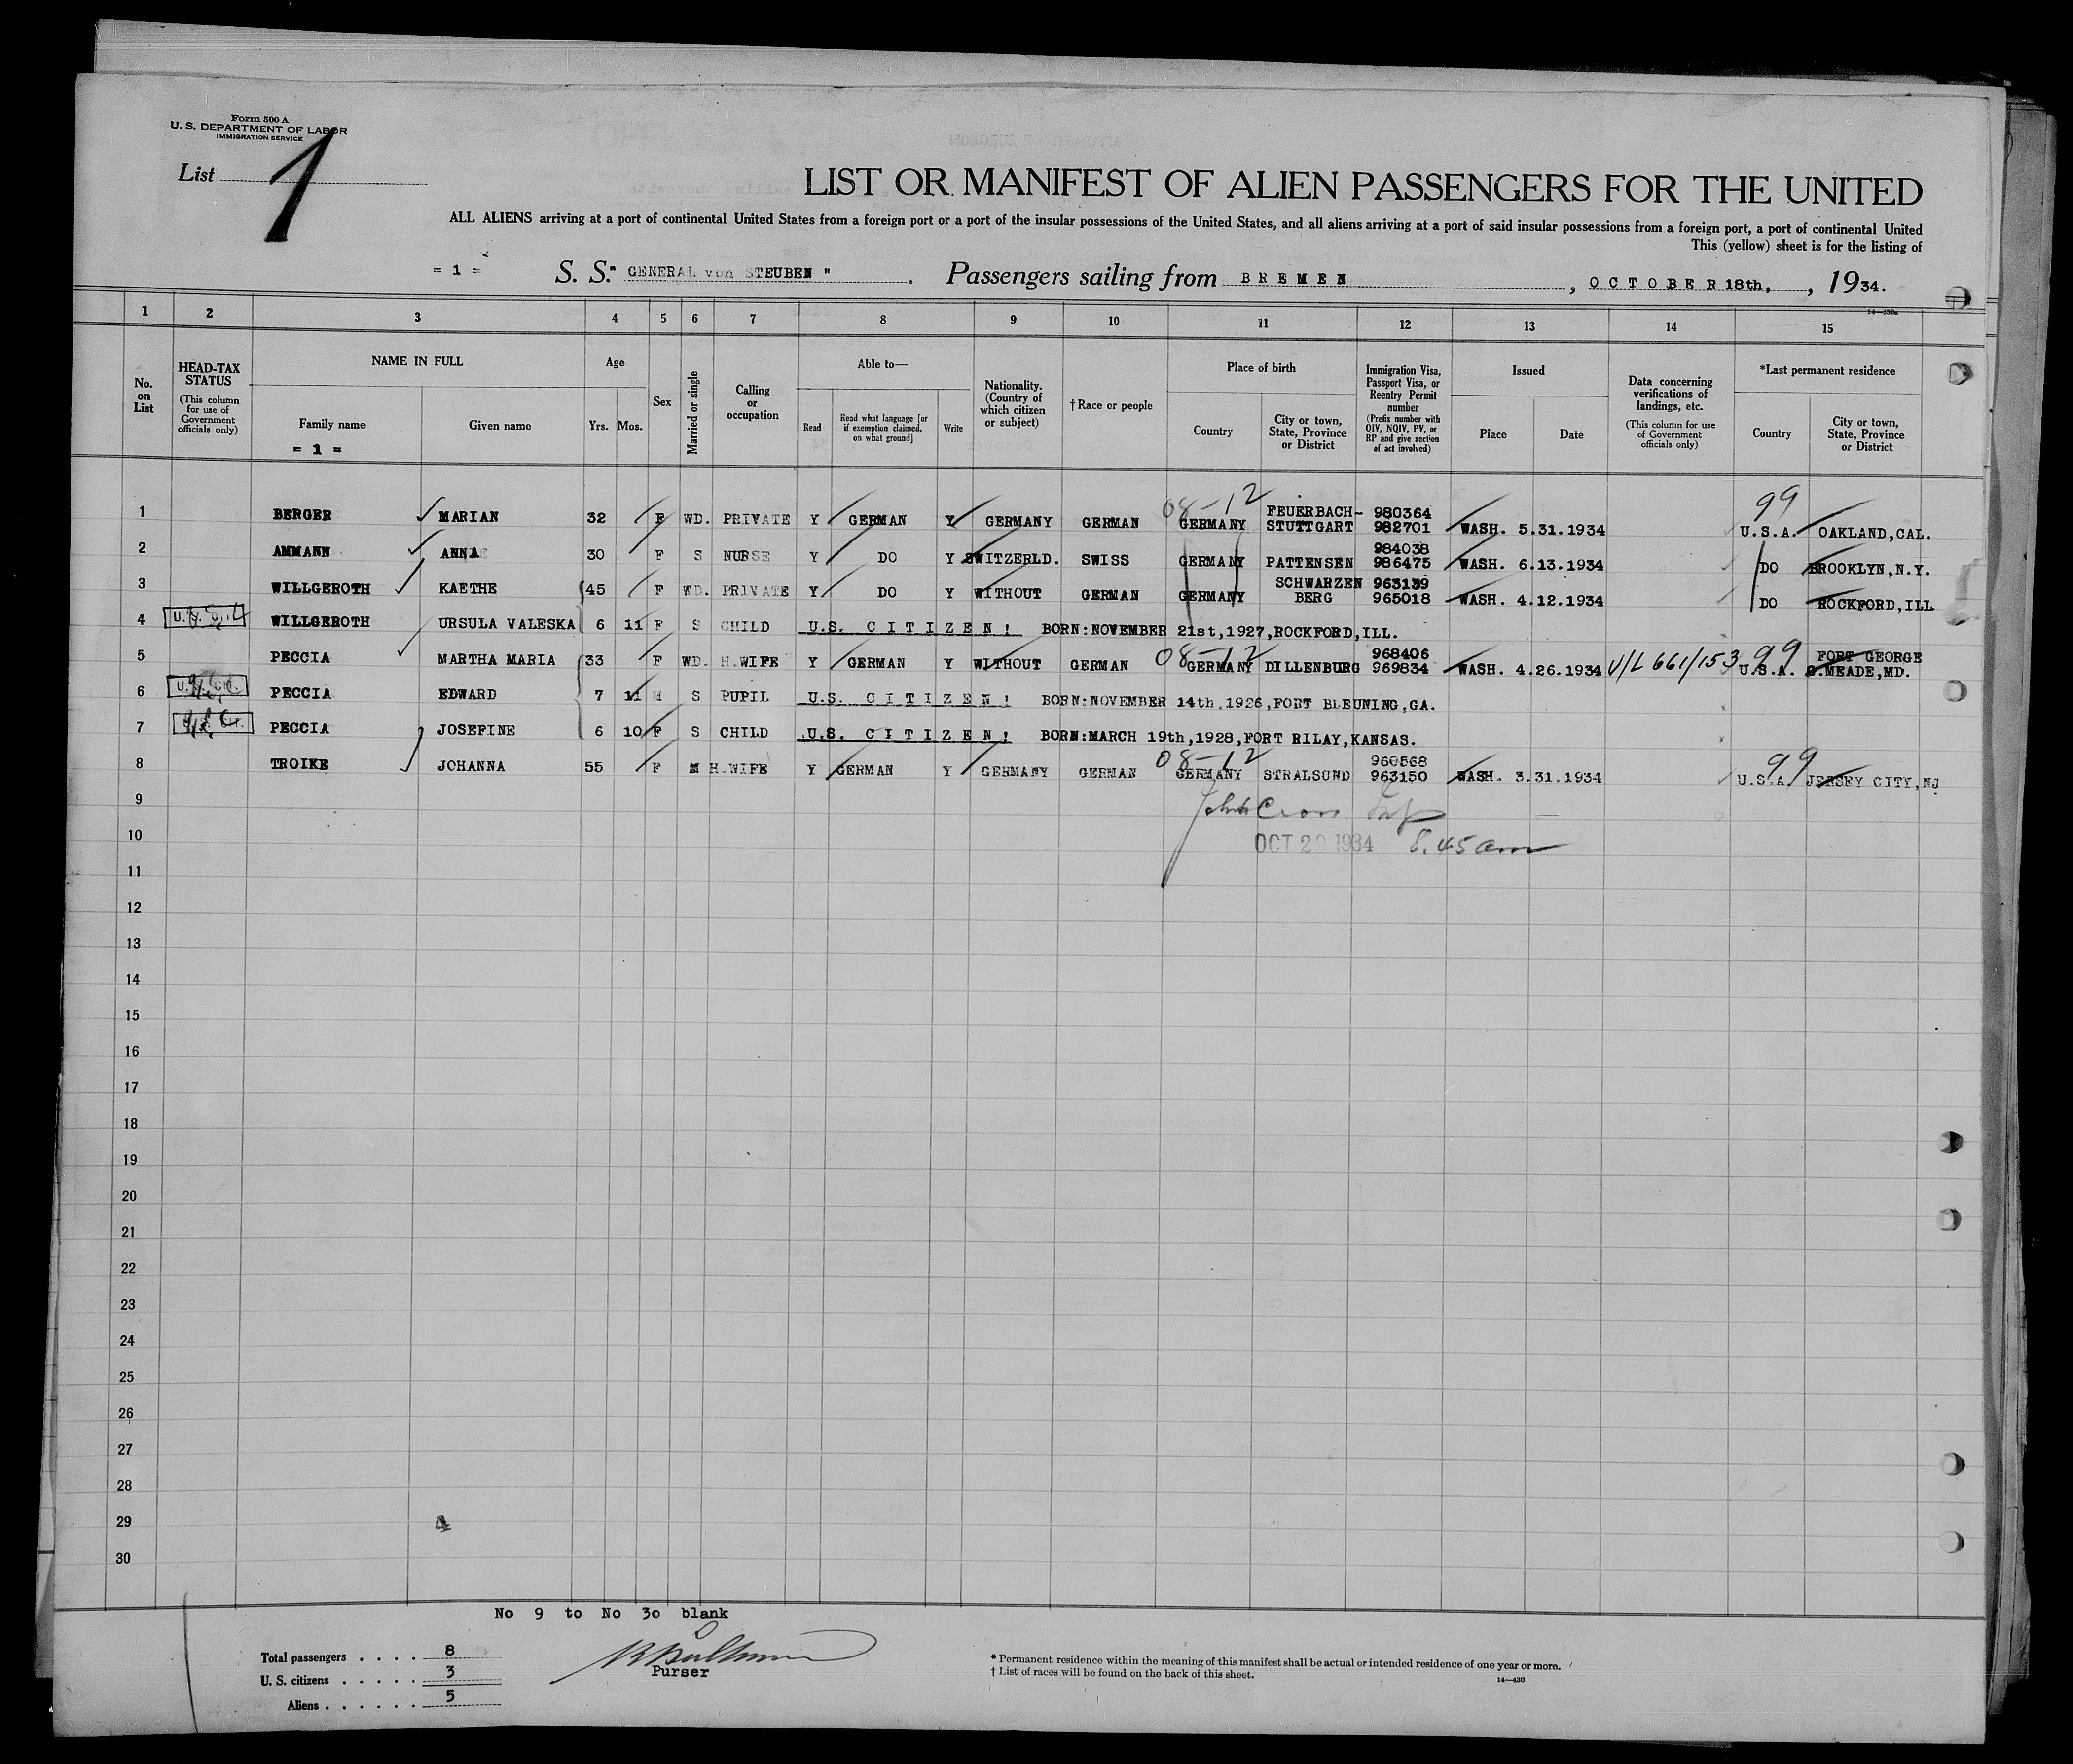 Form 500 A
U. S. DEPARTMENT OF LABOR
IMMIGRATION SERVICE
List 1
LIST OR MANIFEST OF ALIEN PASSENGERS FOR THE UNITED
ALL ALIENS arriving at a port of continental United States from a foreign port or a port of the insular possessions of the United States, and all aliens arriving at a port of said insular possessions from a foreign port, a port of continental United
This (yellow) sheet is for the listing of
= 1 = S. S. " GENERAL von STEUBEN " . Passengers sailing from BREMEN , OCTOBER 18th, , 1934.
14-430a
1 2 3 4 5 6 7 8 9 10 11 12 13 14 15
No. on List
HEAD-TAX STATUS (This column for use of Government officials only)
NAME IN FULL
Family name
= 1 =
Given name
Age
Yrs. Mos.
Sex
Married or single
Calling or occupation
Able to—
Read
Read what language [or if exemption claimed, on what ground]
Write
Nationality. (Country of which citizen or subject)
†Race or people
Place of birth
Country
City or town, State, Province or District
Immigration Visa, Passport Visa, or Reentry Permit number (Prefix number with QIV, NQIV, PV, or RP and give section of act involved)
Issued
Place
Date
Data concerning verifications of landings, etc. (This column for use of Government officials only)
*Last permanent residence
Country
City or town, State, Province or District
08-12 99
1 BERGER MARIAN 32 F WD. PRIVATE Y GERMAN Y GERMANY GERMAN GERMANY FEUERBACH-STUTTGART 980364 982701 WASH. 5.31.1934 U.S.A. OAKLAND,CAL.
2 AMMANN ANNA 30 F S NURSE Y DO Y SWITZERLD. SWISS GERMANY PATTENSEN 984038 986475 WASH. 6.13.1934 DO BROOKLYN,N.Y.
3 WILLGEROTH KAETHE 45 F WD. PRIVATE Y DO Y WITHOUT GERMAN GERMANY SCHWARZEN BERG 963139 965018 WASH. 4.12.1934 DO ROCKFORD,ILL
4 WILLGEROTH URSULA VALESKA 6 11 F S CHILD U.S. CITIZEN! BORN:NOVEMBER 21st,1927,ROCKFORD,ILL.
5 PECCIA MARTHA MARIA 33 F WD. H.WIFE Y GERMAN Y WITHOUT GERMAN 08-12 GERMANY DILLENBURG 968406 969834 WASH. 4.26.1934 V/L 661/153 99 U.S.A. FORT GEORGE G.MEADE,MD.
6 PECCIA EDWARD 7 11 M S PUPIL U.S. CITIZEN! BORN:NOVEMBER 14th,1926,FORT BLEUNING,GA.
7 PECCIA JOSEFINE 6 10 F S CHILD U.S. CITIZEN! BORN:MARCH 19th,1928,FORT RILAY,KANSAS.
08-12 99
8 TROIKE JOHANNA 55 F M H.WIFE Y GERMAN Y GERMANY GERMAN GERMANY STRALSUND 960568 963150 WASH. 3.31.1934 U.S.A. JERSEY CITY,NJ
9
John Cross Insp
10 OCT 29 1934 8.45 am
11
12
13
14
15
16
17
18
19
20
21
22
23
24
25
26
27
28
29 4
30
No 9 to No 30 blank
Total passengers . . . . 8
U. S. citizens . . . . . 3
Aliens . . . . . . 5
Purser
* Permanent residence within the meaning of this manifest shall be actual or intended residence of one year or more.
† List of races will be found on the back of this sheet.
14-430